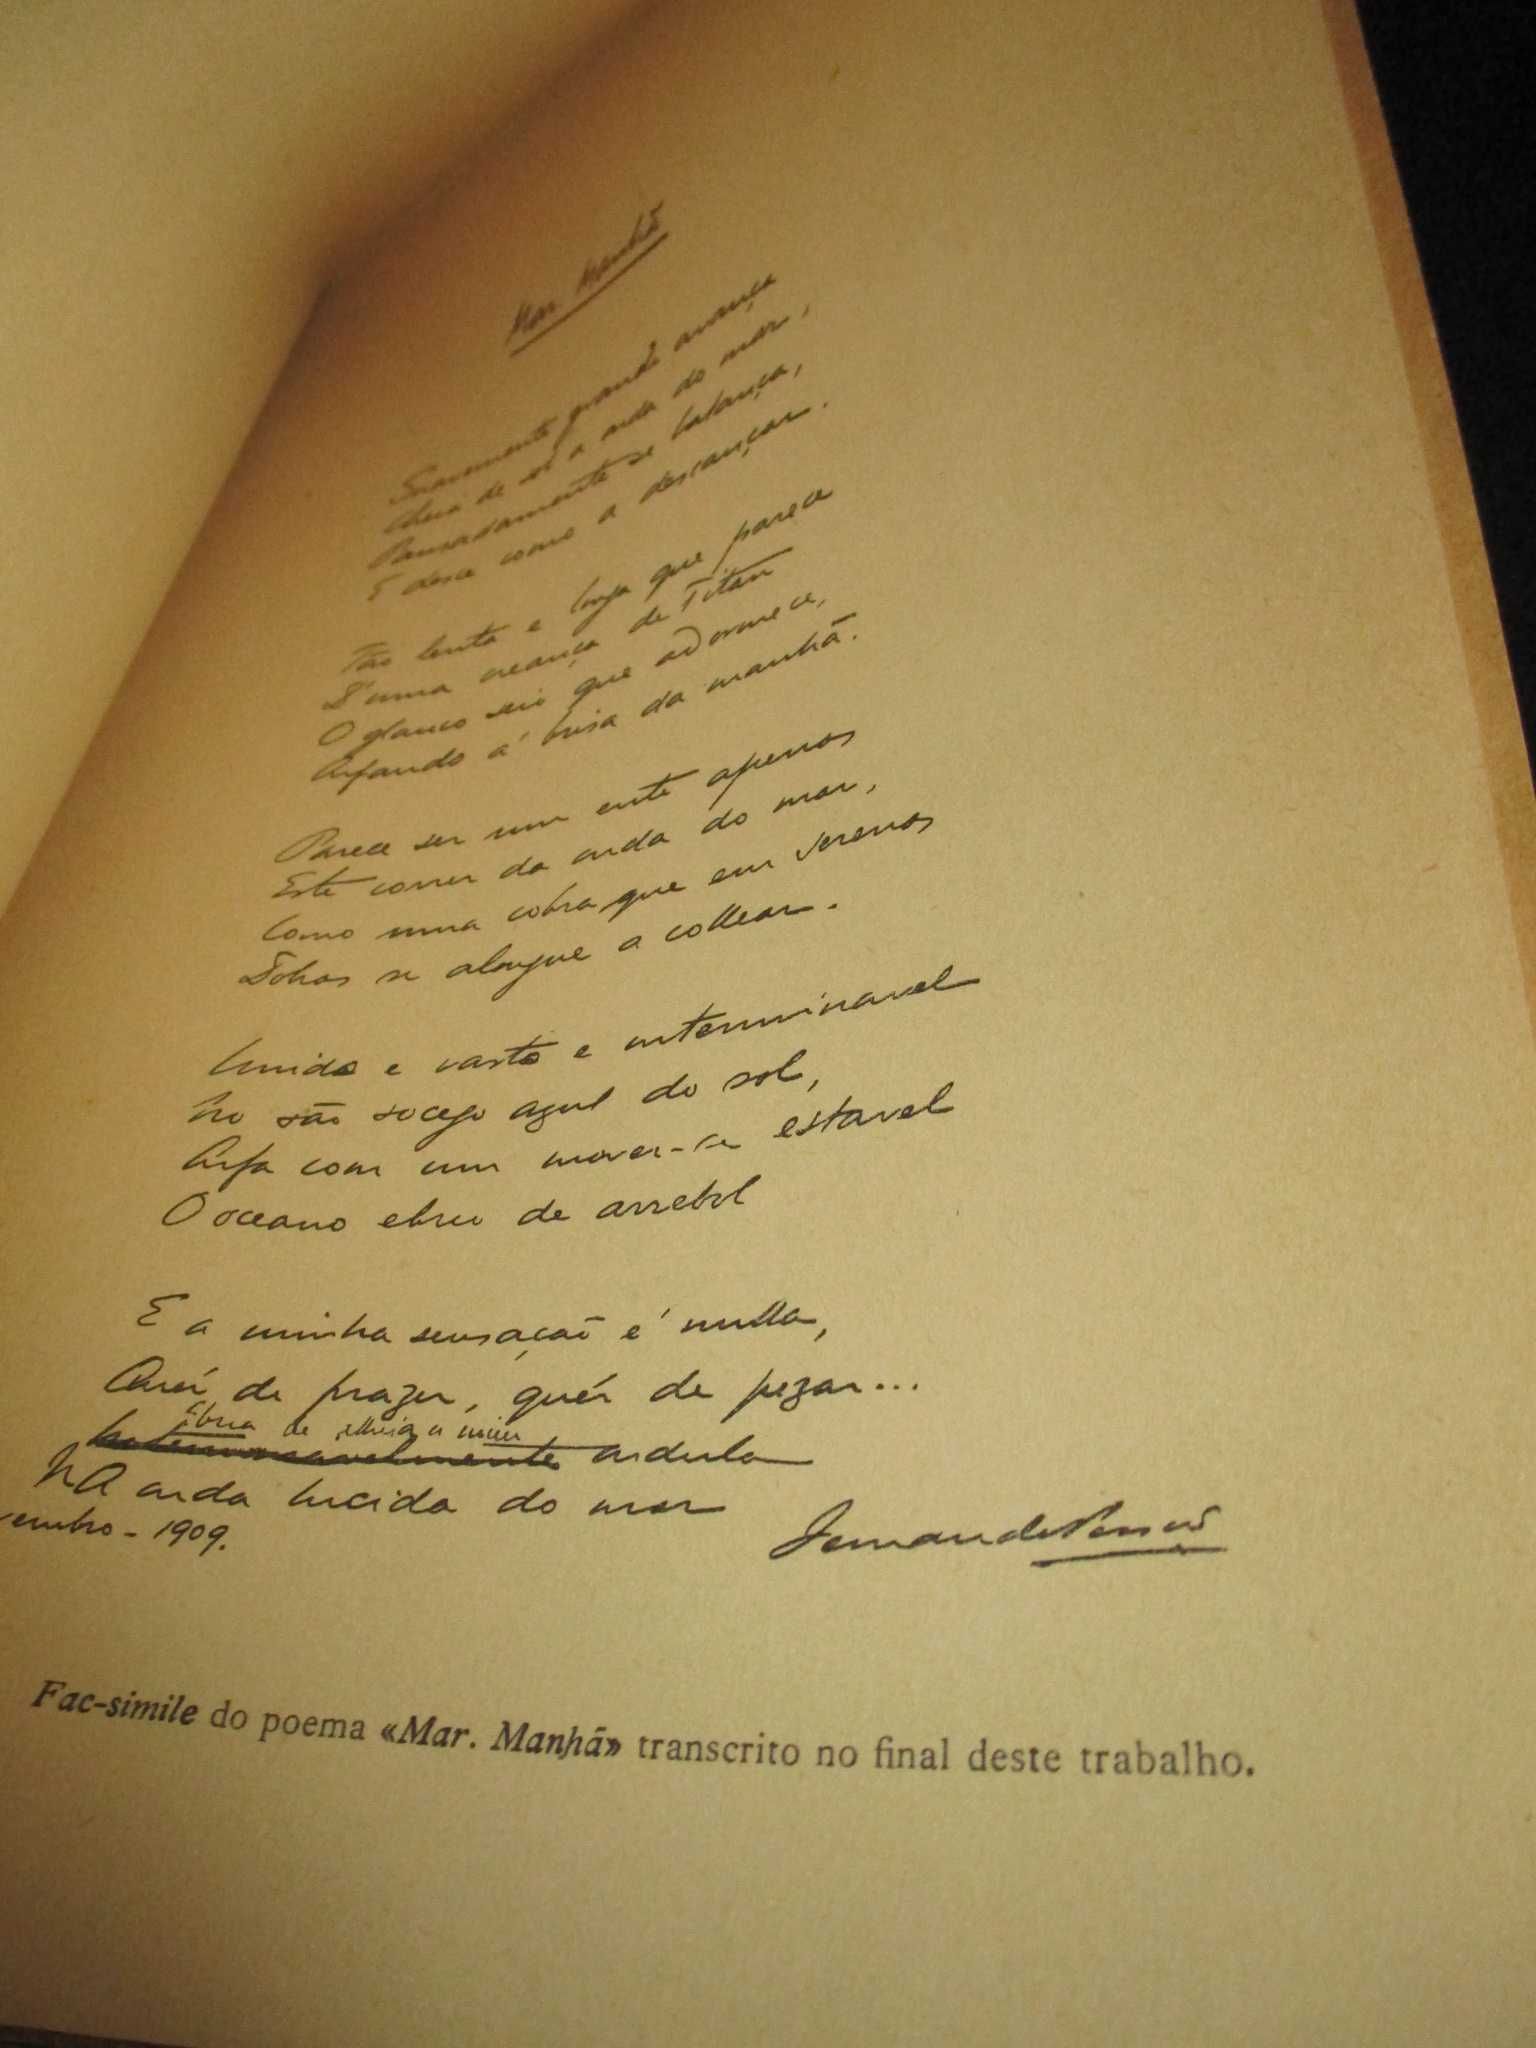 Mar Manhã
Suavemente grande avança
Cheia de sol a onda do mar,
Pausadamente se balança,
E desce como a descançar.
Tão lenta e longa que parece
D'uma creança de Titan
O glauco seio que adormece,
Arfando á brisa da manhã.
Parece ser um ente apenas
Este correr da onda do mar,
Como uma cobra que em serenas
Dobras se alongue a collear.
Unido e vasto e interminavel
No são socego azul do sol,
Arfa com um mover-se estavel
O oceano ebrio de arrebol
E a minha sensação é nulla,
Quér de prazer, quér de pezar...
Ebria de alheia a mim
ondula
NA onda lucida do mar
embro - 1909.
Fernando Pessoa
Fac-simile do poema «Mar. Manhã» transcrito no final deste trabalho.